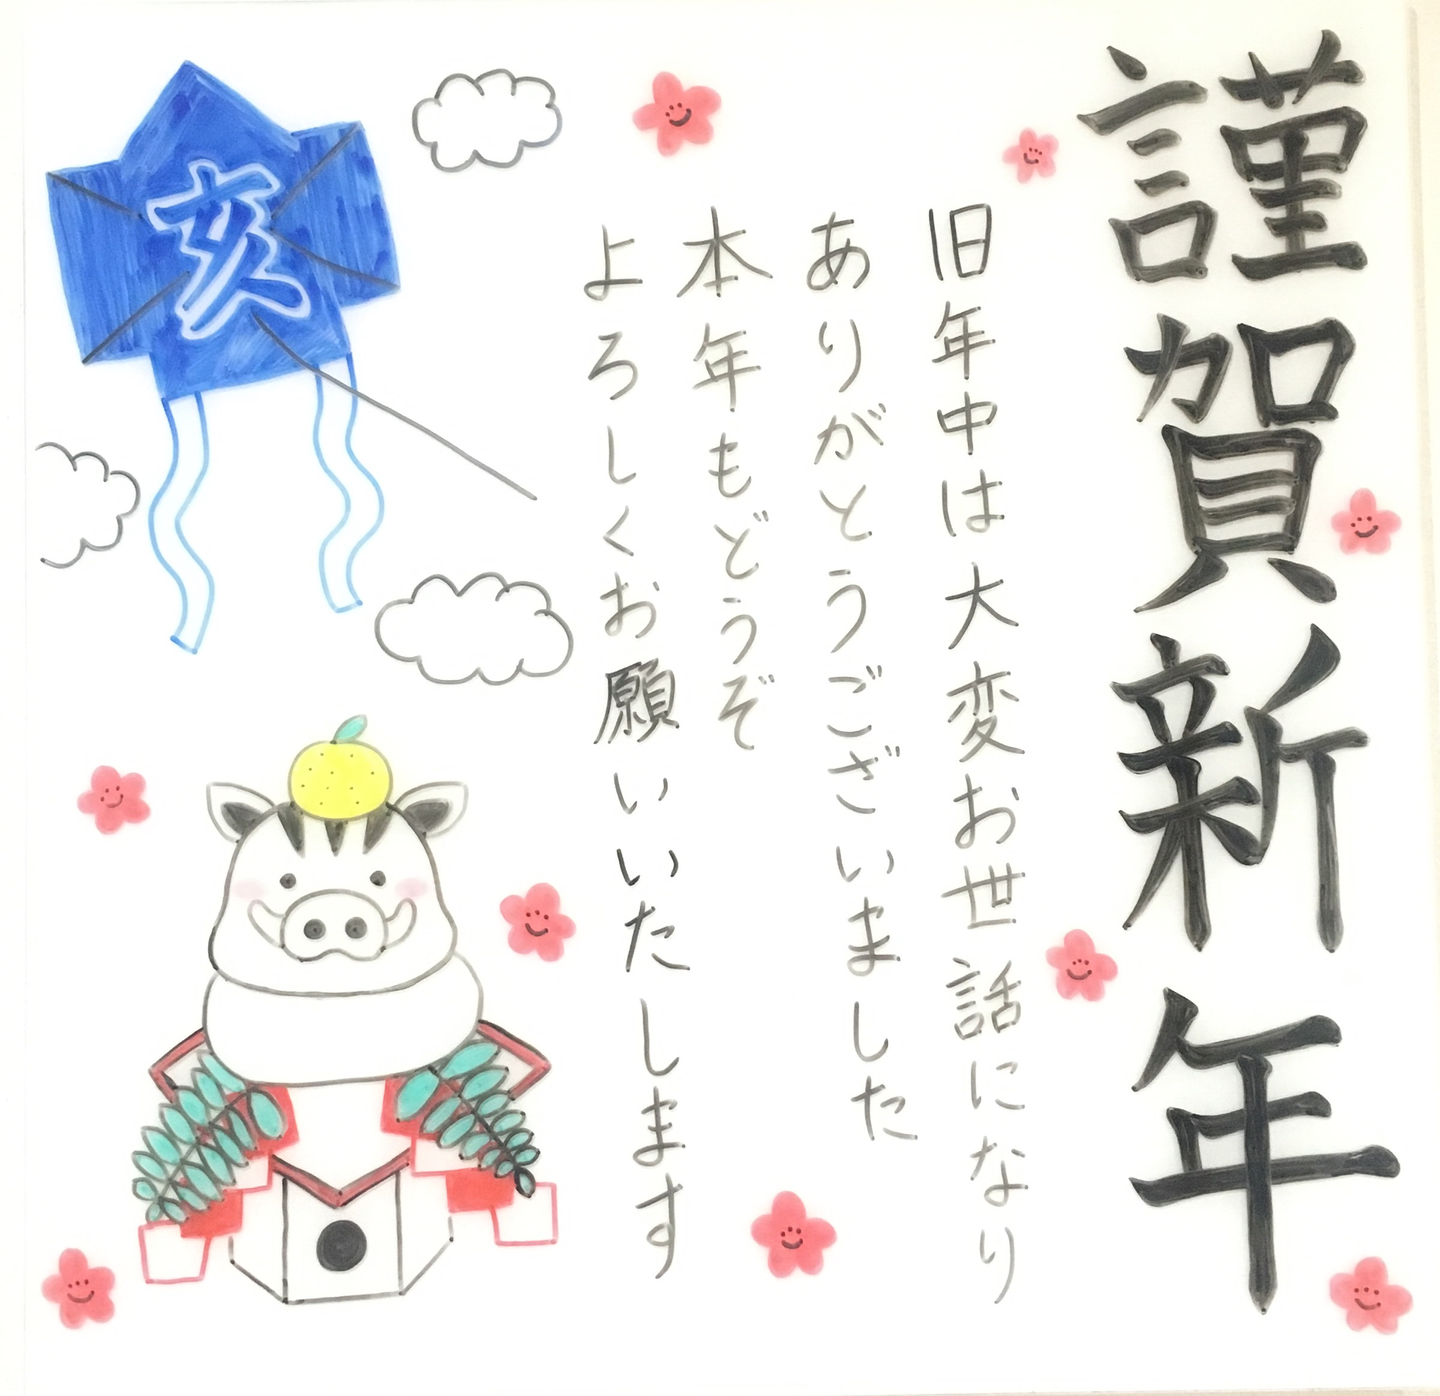 謹賀新年
旧年中は大変お世話になり
ありがとうございました
本年もどうぞ
よろしくお願いいたします
亥